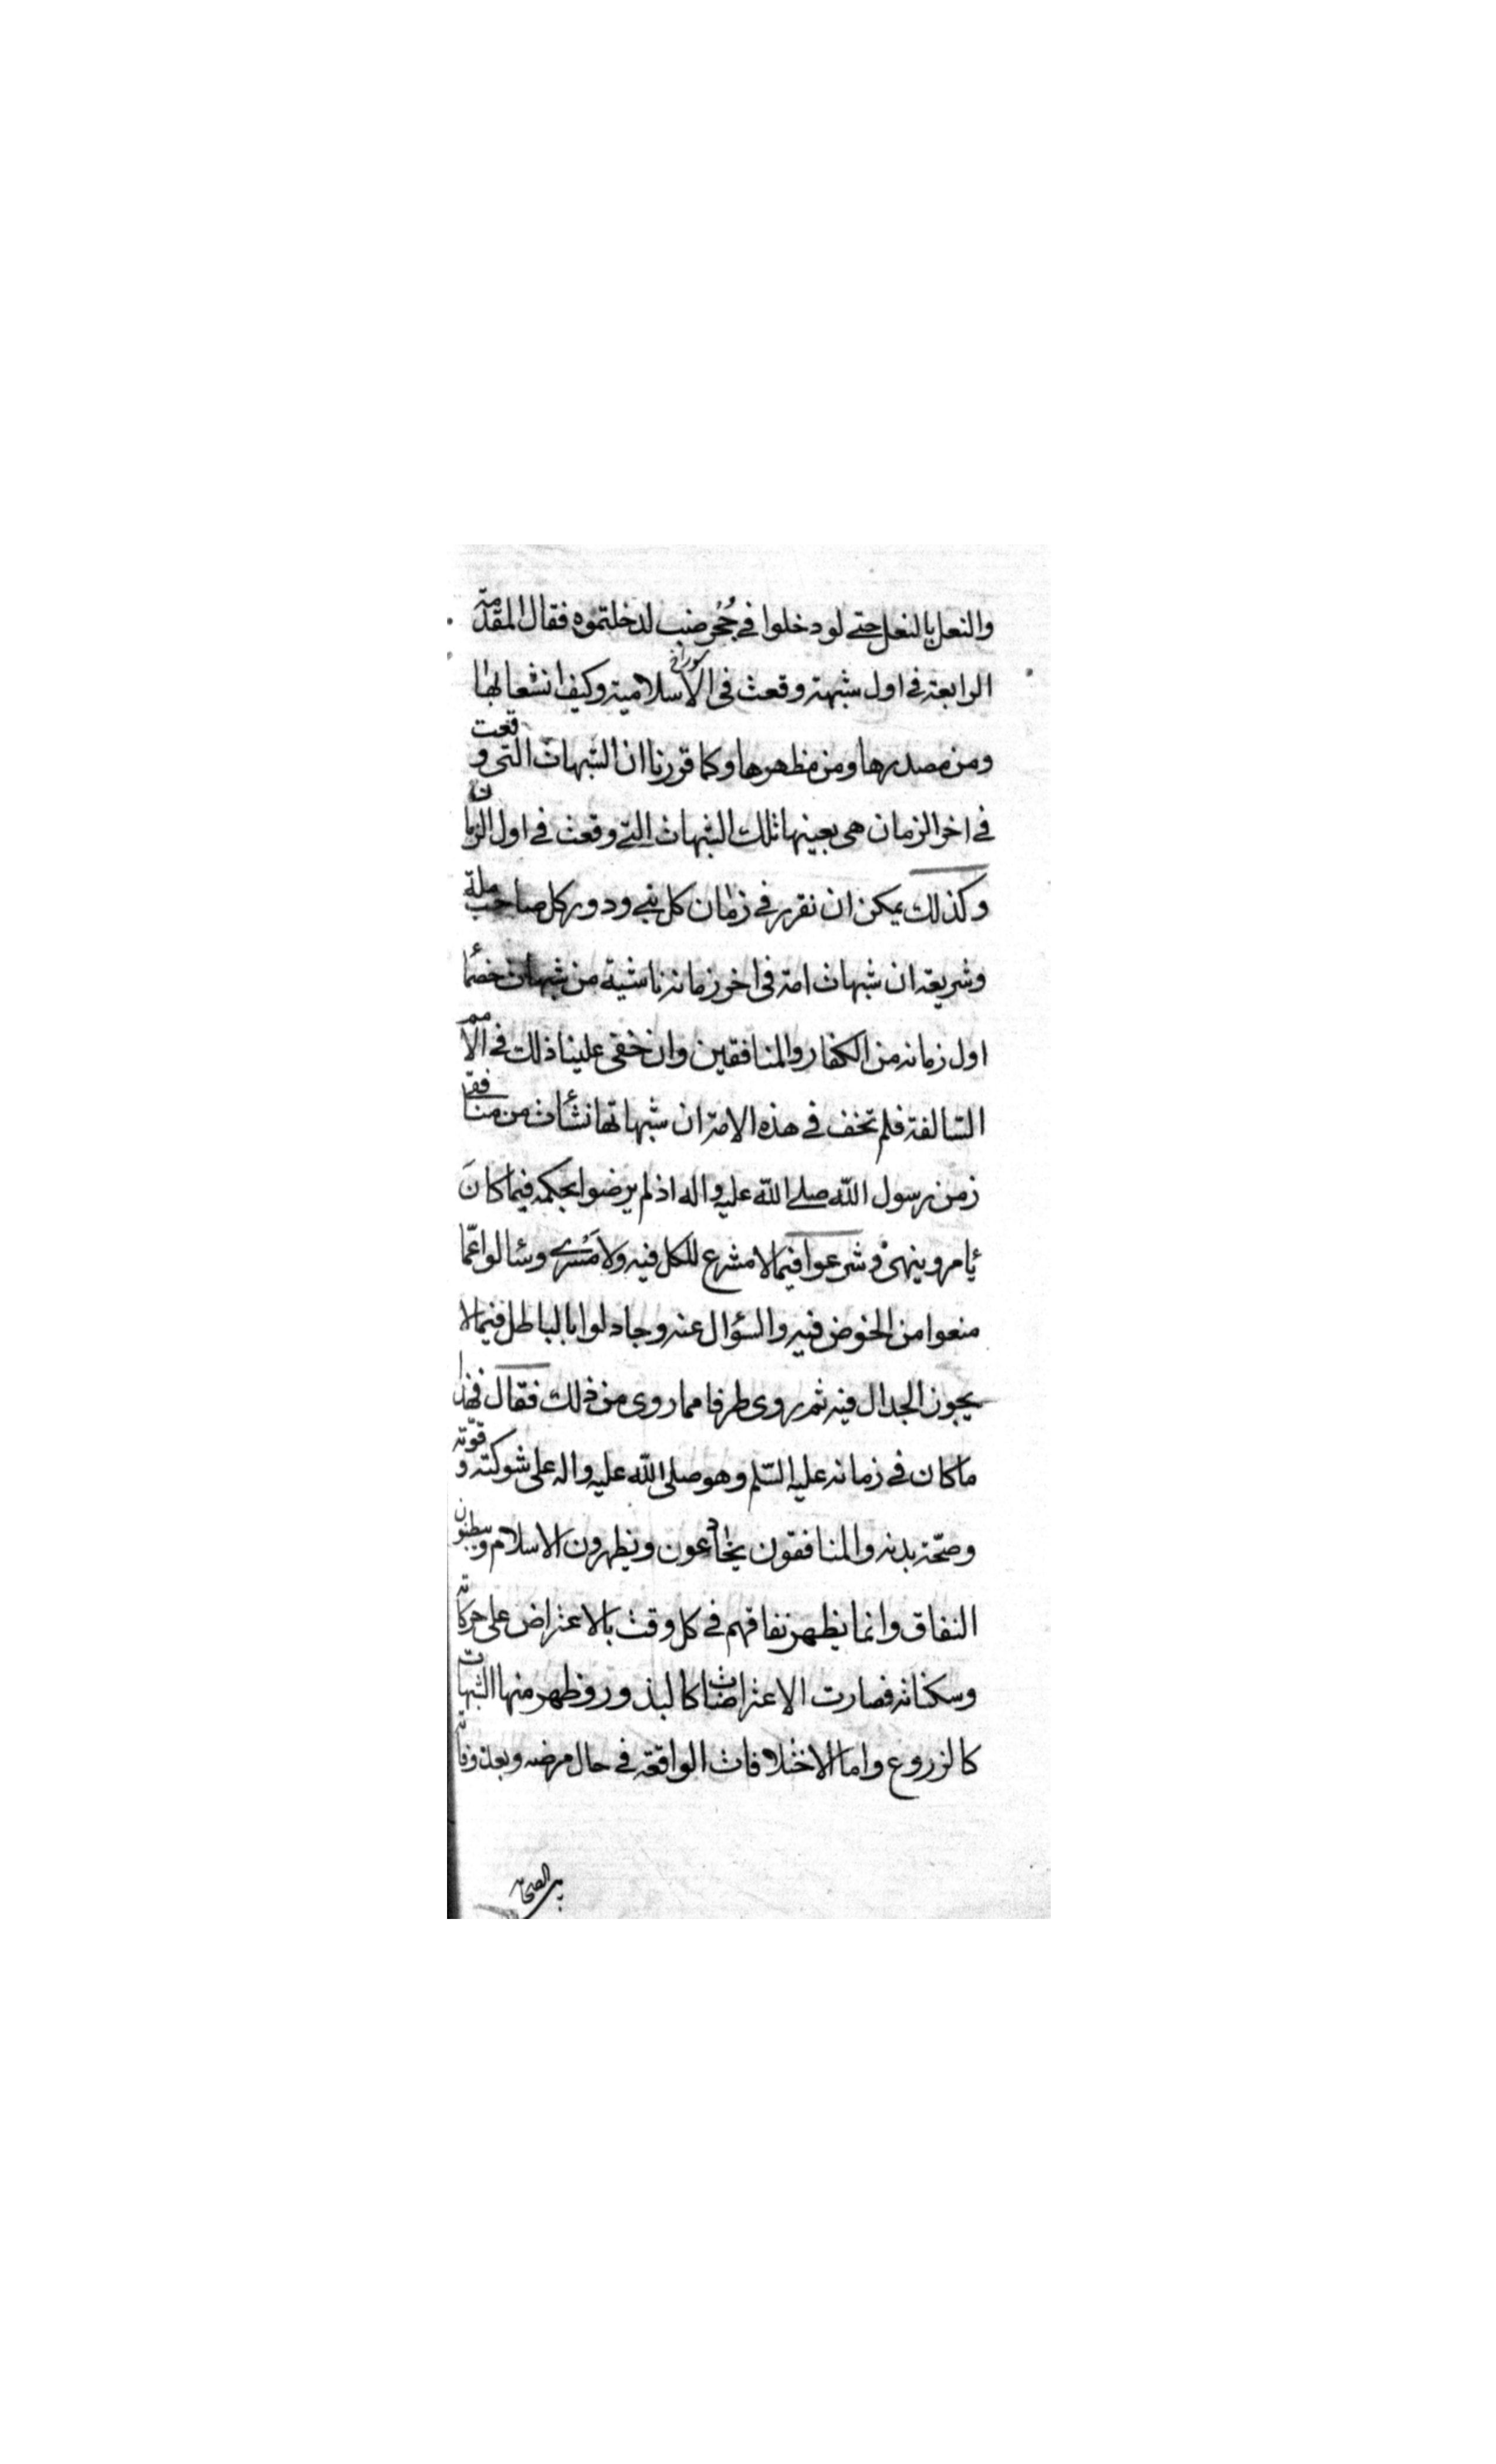 والنعل بالنعل حتى لو دخلوا في جُحر ضب لدخلتموه فقال المقدمة
سوراخ
الرابعة في اول شبهة وقعت فى الاسلامية وكيف انشعابها
ومن مصدرها ومن مظهرها وكما قررنا ان الشبهات التى وقعت
في اخر الزمان هى بعينها تلك الشبهات التي وقعت في اول الزمان
وكذلك يمكن ان نقرر في زمان كل نبي ودور كل صاحب ملة
وشريعة ان شبهات امته فى اخر زمانه ناشية من شبهات خصماء
اول زمانه من الكفار والمنافقين وان خفى علينا ذلك في الامم
السالفة فلم تخف في هذه الامة ان شبهاتها نشأت من منافقي
زمن رسول الله صلى الله عليه واله اذ لم يرضوا بحكمه فيما كان
يأمر وينهى وشرعوا فيما لا مشرع للكل فيه ولا مَسْرى وسألوا عمّا
منعوا من الخوض فيه والسؤال عنه وجادلوا بالباطل فيما لا
يجوز الجدال فيه ثم روى طرفا مما روى من ذلك فقال فهذا
ما كان في زمانه عليه السلم وهو صلى الله عليه واله على شوكته وقوّته
وصحّة بدنه والمنافقون يخادعون ويظهرون الاسلام ويبطنون
النفاق وانما يظهر نفاقهم في كل وقت بالاعتراض على حركاته
وسكناته فصارت الاعتراضات كالبذور وظهر منها الشبهات
كالزروع واما الاختلافات الواقعة في حال مرضه وبعد وفاته
بين الصحابة